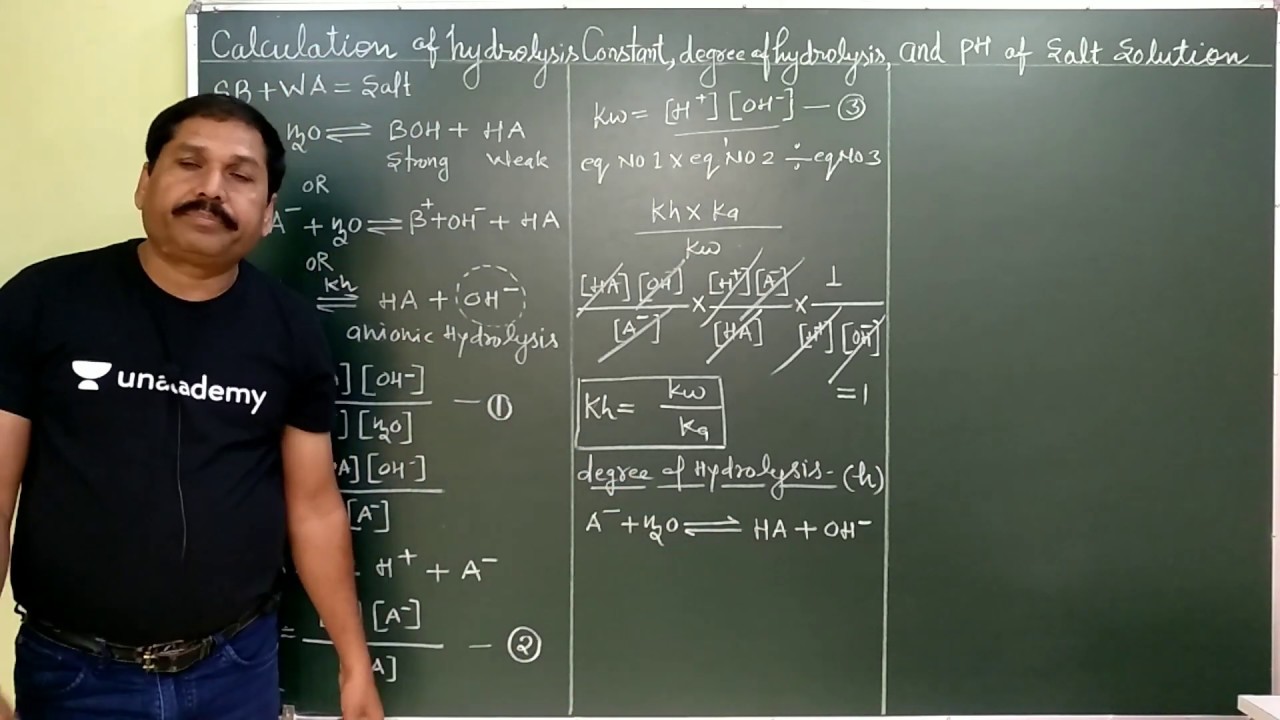 Calculation of hydrolysis Constant, degree of hydrolysis, and PH of Salt Solution
SB + WA = Salt
H2O ⇌ BOH + HA
Strong Weak
OR
A⁻ + H2O ⇌ B⁺ + OH⁻ + HA
OR
Kh
⇌ HA + OH⁻
anionic Hydrolysis
] [OH⁻]
— ①
] [H2O]
A] [OH⁻]
[A⁻]
H⁺ + A⁻
= ] [A⁻]
— ②
A]
Kw = [H⁺] [OH⁻] — ③
eq NO 1 × eq NO 2 ÷ eq NO 3
Kh × Ka
Kw
[HA] [OH⁻] × [H⁺] [A⁻] × 1
[A⁻] [HA] [H⁺] [OH⁻]
= 1
Kh = Kw
Ka
degree of Hydrolysis - (h)
A⁻ + H2O ⇌ HA + OH⁻
unacademy